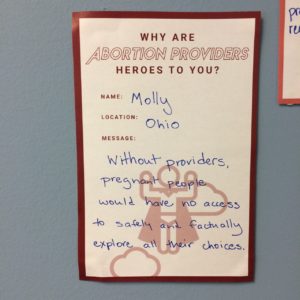 WHY ARE
ABORTION PROVIDERS
HEROES TO YOU?
NAME: Molly
LOCATION: Ohio
MESSAGE:
Without providers,
pregnant people
would have no access
to safely and factually
explore all their choices.